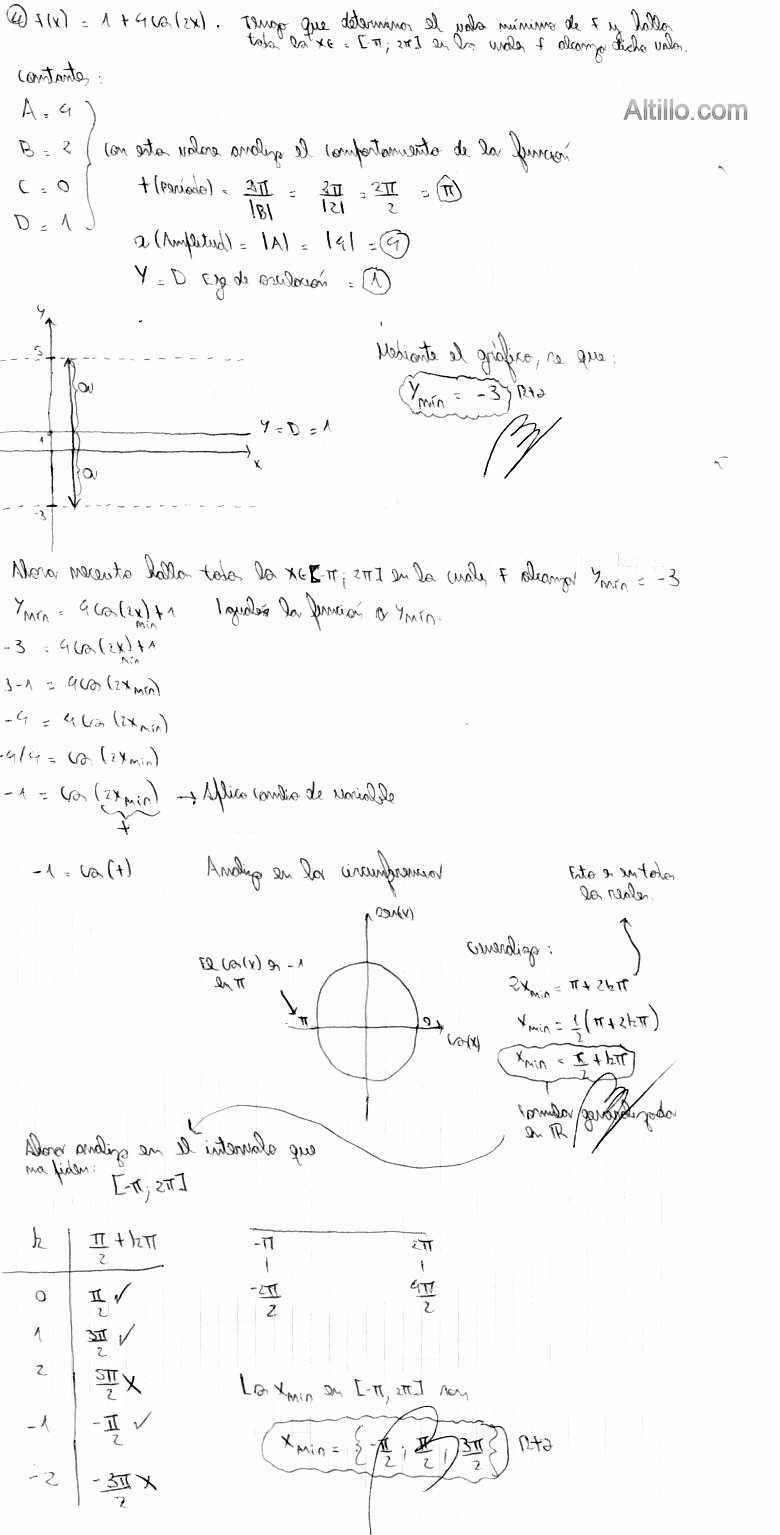 4) f(x) = 1 + 4cos(2x). Tengo que determinar el valor mínimo de f y hallar
todos los x ∈ = [π; 2π] en los cuales f alcanza dicho valor.
Altillo.com
Constantes:
A = 4
B = 2
C = 0
D = 1
Con estos valores analizo el comportamiento de la función
t (Período) = 2π/|B| = 2π/|2| = 2π/2 = π
a (Amplitud) = |A| = |4| = 4
Y = D Eje de oscilación = 1
y
5
a
1
a
-3
Y = D = 1
x
Mediante el gráfico, se que:
Ymín = -3 Rta
Ahora necesito hallar todos los x ∈ [-π; 2π] en los cuales f alcanza Ymín = -3
Ymín = 4cos(2x mín) + 1 Igualo la función a Ymín.
-3 = 4cos(2x mín) + 1
3-1 = 4cos(2xmín)
-4 = 4cos(2xmín)
-4/4 = cos(2xmín)
-1 = cos(2xmín) → Aplico cambio de variable
t
-1 = cos(t) Analizo en la circunferencia
sen(x)
El cos(x) es -1
en π
π
0
cos(x)
Esto es en todos
los reales.
Generalizo:
2xmín = π + 2kπ
xmín = 1/2 (π + 2kπ)
xmín = π/2 + kπ
Formula generalizada
en IR
Ahora analizo en el intervalo que
me piden:
[-π; 2π]
k | π/2 + kπ
0 | π/2 ✓
1 | 3π/2 ✓
2 | 5π/2 X
-1 | -π/2 ✓
-2 | -3π/2 X
-π 2π
-2π/2 4π/2
Los xmín en [-π, 2π] son
xmín = {-π/2; π/2; 3π/2} Rta